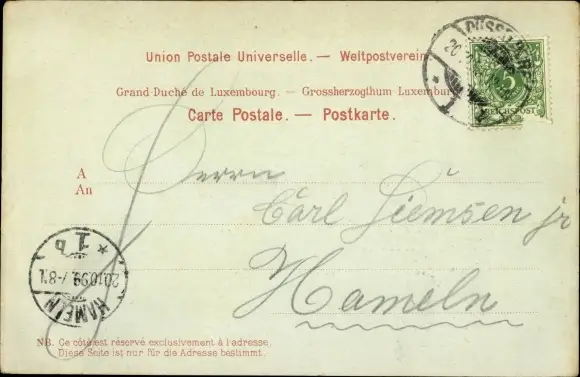 Union Postale Universelle. — Weltpostverein.
Grand-Duché de Luxembourg. — Grossherzogthum Luxemburg
Carte Postale. — Postkarte.
DÜSSELDORF
5
REICHSPOST
A
An
Herrn
Carl Siemsen jr
Hameln
HAMELN
20.10.99. 7-8V.
* 1b
NB. Ce côté est réservé exclusivement à l'adresse.
Diese Seite ist nur für die Adresse bestimmt.